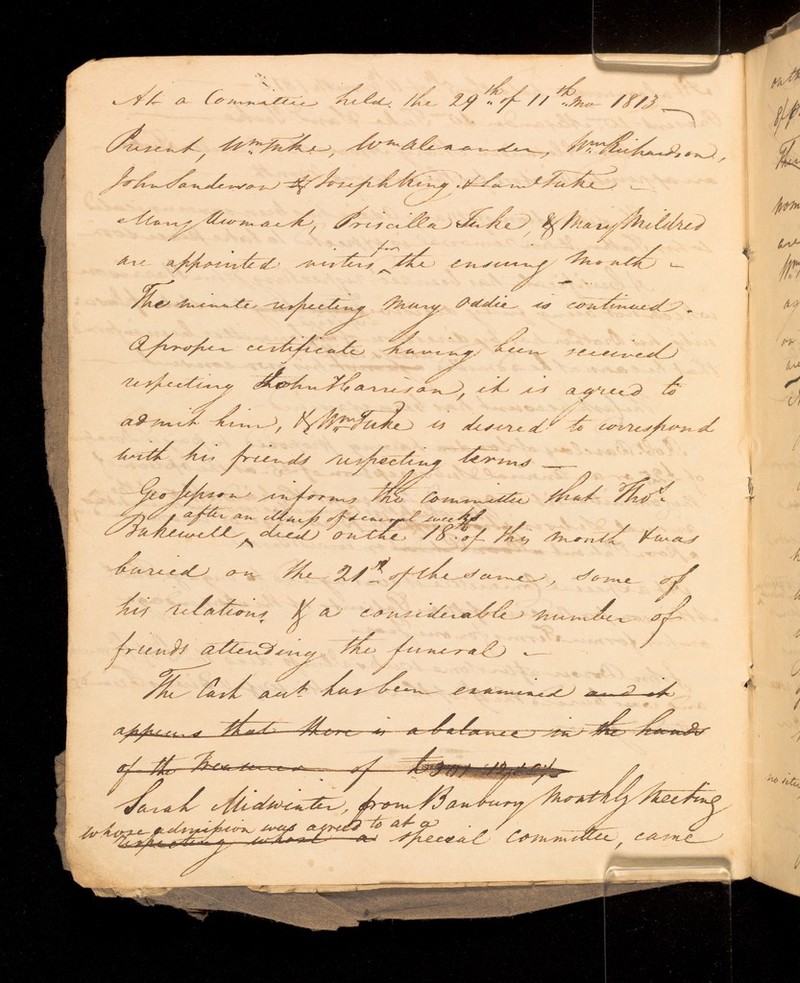 At a Committee held the 29th of 11th mo 1813
Present, Wm Tuke, Wm Alexander, Wm Richardson,
John Sanderson & Joseph King & Saml Tuke
Mary Awmack, Priscilla Tuke, & Mary Mildred
for
are appointed visters the ensuing month
The minute respecting Mary Oddie is continued.
A proper certificate having been received
respecting John Harrison, it is agreed to
admit him, & Wm Tuke is desired to correspond
with his friends respecting terms
Geo Jepson informs the Committee that Thos.
after an illness of several weeks
Bakewell, died on the 18th of this month & was
buried on the 21st of the same, some of
his relations & a considerable number of
friends attending the funeral
The Cash acct has been examined and it
appears that there is a balance in the hands
of the Treasurer of
Sarah Midwinter, from Banbury Monthly Meeting
whose admission was agreed to at a
respecting whose a special committee, came